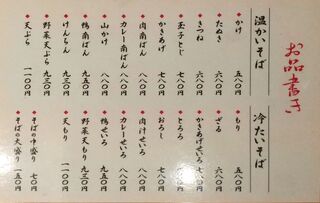 お品書き
温かいそば
かけ 五八〇円
たぬき 六八〇円
きつね 六八〇円
玉子とじ 七八〇円
かきあげ 七八〇円
肉南ばん 八八〇円
カレー南ばん 八八〇円
山かけ 八八〇円
鴨南ばん 九五〇円
けんちん 九三〇円
野菜天ぷら 九三〇円
天ぷら 一一〇〇円
冷たいそば
もり 五八〇円
ざる 六八〇円
かきあげせいろ 七八〇円
とろろ 七八〇円
おろし 七八〇円
肉汁せいろ 八八〇円
カレーせいろ 八八〇円
鴨せいろ 九五〇円
野菜天もり 九三〇円
天もり 一一〇〇円
そばの中盛り 七〇円
そばの大盛り 一五〇円